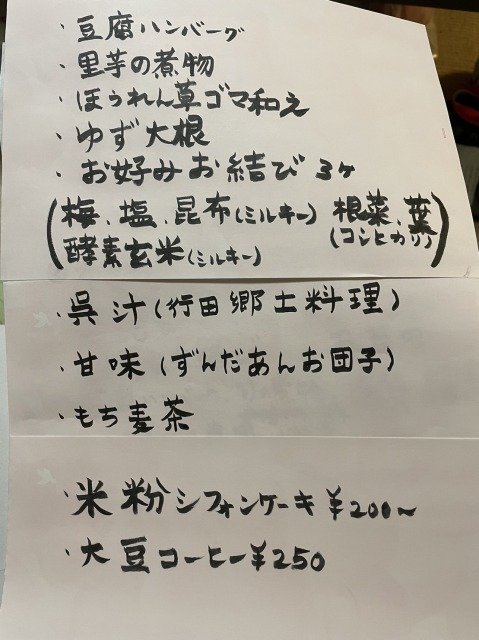 ・豆腐ハンバーグ
・里芋の煮物
・ほうれん草ゴマ和え
・ゆず大根
・お好みお結び 3ヶ
(梅、塩、昆布(ミルキー) 根菜、葉
酵素玄米(ミルキー) (コシヒカリ))
・呉汁(行田郷土料理)
・甘味(ずんだあんお団子)
・もち麦茶
・米粉シフォンケーキ¥200~
・大豆コーヒー¥250